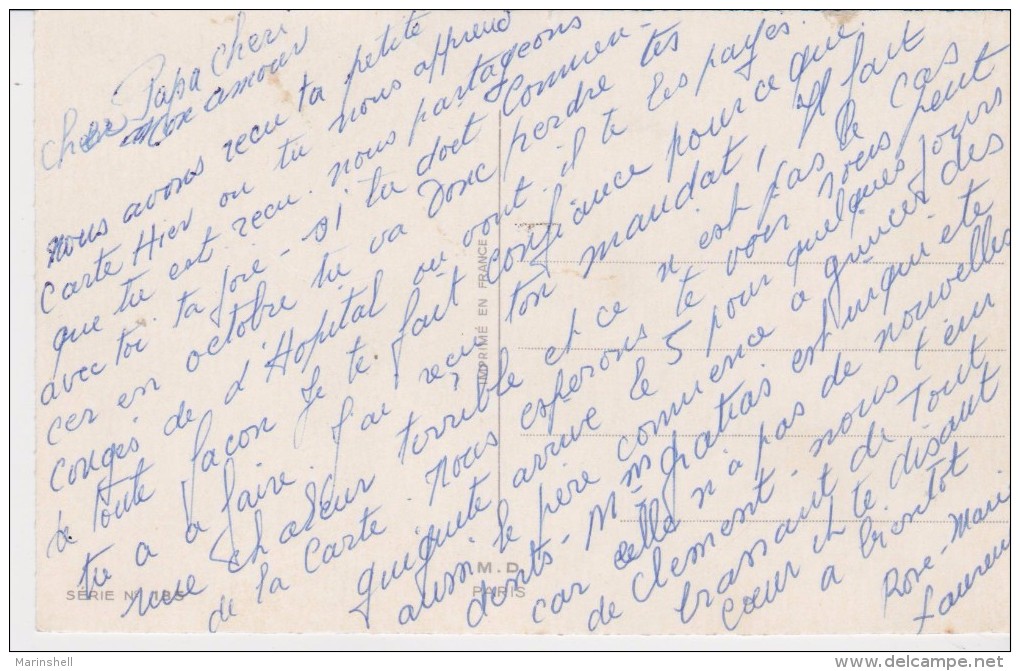 cher Papa cheri
mon amour
nous avons recu ta petite
carte Hier ou tu nous apprend
que tu est recu. nous partageons
avec toi ta joie - si tu doit commen-
cer en octobre tu va donc perdre tes
congés de d'Hopital ou vont il te les payes.
de toute facon je te fait confiance pour ce que
tu a a faire. j'ai recu ton mandat, il fait
une chaleur terrible et ce n'est pas le cas
de la carte nous esperons te voir vous peut
arrive le 5 pour quelques jours
aussi. le père commence a
dents - Mm Gratias est inquiete
car celle n'a pas de nouvelles
de Clement. nous t'em
brassant de Tout
cœur en te disant
a bientot
Rose-Marie
Laurent
SERIE N° 185
M.D.
PARIS
IMPRIMÉ EN FRANCE
Marinshell
delcampe.net